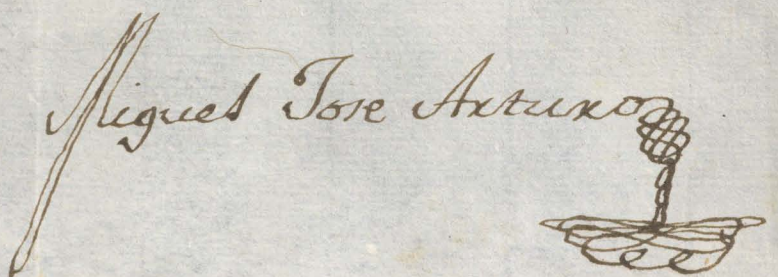 Miguel Jose Arturo